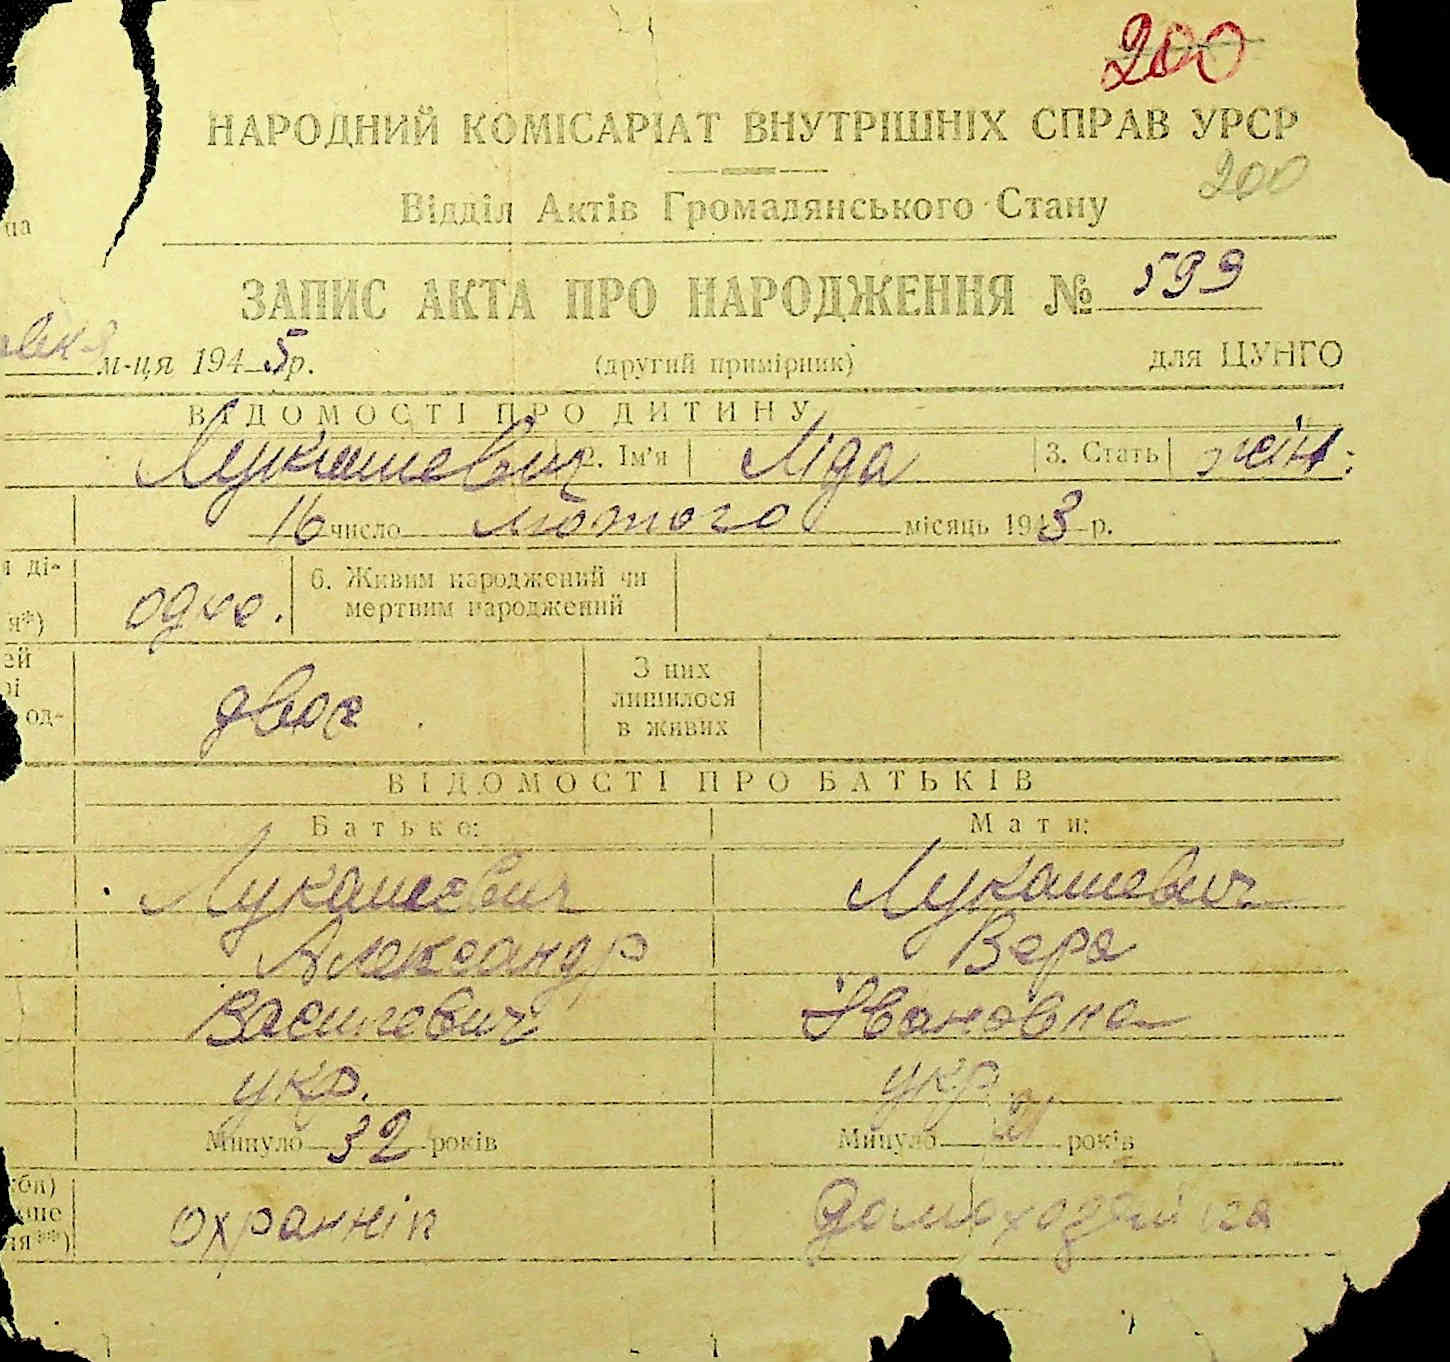 200
НАРОДНИЙ КОМІСАРІАТ ВНУТРІШНІХ СПРАВ УРСР
200
Відділ Актів Громадянського Стану
ЗАПИС АКТА ПРО НАРОДЖЕННЯ № 599
м-ця 1945 р. (другий примірник) для ЦУНГО
ВІДОМОСТІ ПРО ДИТИНУ
Лукашевич 2. Ім'я Ліда 3. Стать жін.
16 число лютого місяць 1943 р.
ді-
одно. 6. Живим народжений чи
я*) мертвим народжений
ей З них
двоє лишилося
од- в живих
ВІДОМОСТІ ПРО БАТЬКІВ
Батько: Мати:
Лукашевич Лукашевич
Александр Вера
Василевич Івановна
укр. укр
Минуло 32 років Минуло років
би)
охраннік домохозяйка
ня**)